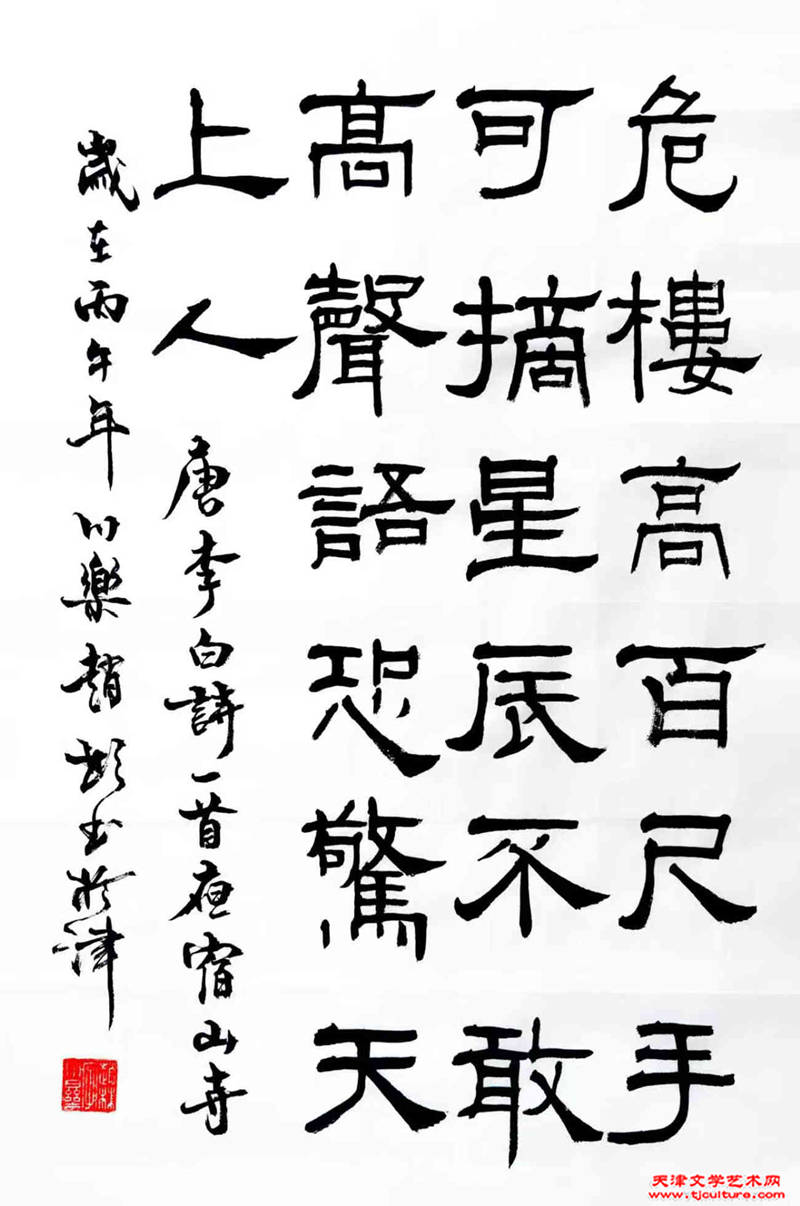 危樓高百尺手
可摘星辰不敢
髙聲語恐驚天
上人
唐李白詩一首夜宿山寺
歲在丙午年 樂趙 书於津
天津文学艺术网
www.tjculture.com